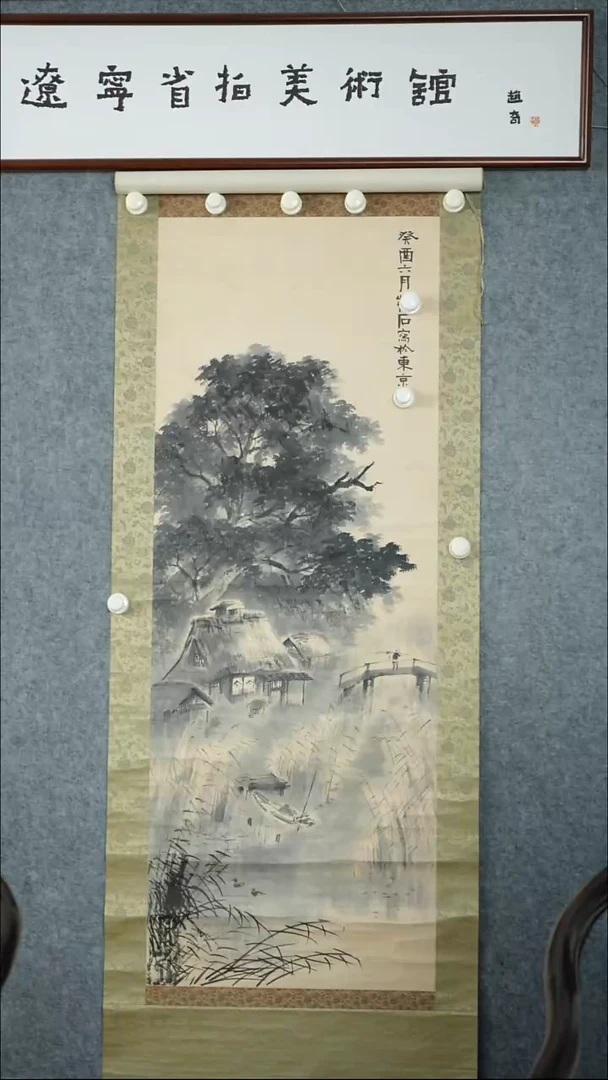 遼寧省拍美術館
趙奇
癸酉六月石寫於東京